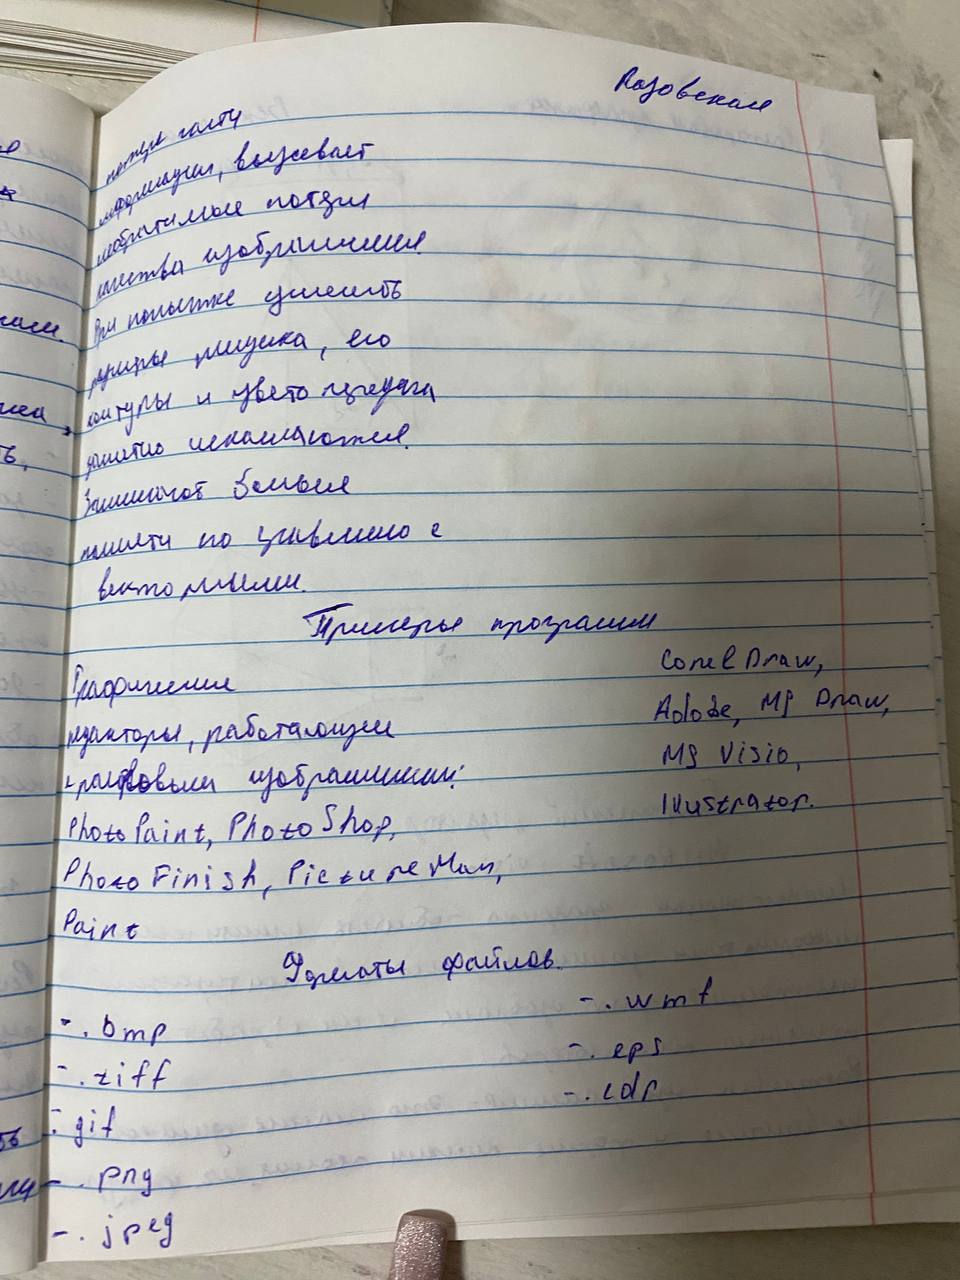 потере части
информации, вызывает
необратимые потери
качества изображения.
При попытке увеличить
размеры рисунка, его
контуры и цветопередача
заметно искажаются.
Занимают больше
памяти по сравнению с
векторными.
Примеры программ
Графические
редакторы, работающие
с растровыми изображениями:
PhotoPaint, PhotoShop,
Photo Finish, Picture Man,
Paint
Corel Draw,
Adobe, MS Draw,
MS Visio,
Illustrator.
Форматы файлов.
-. bmp
-. tiff
-. gif
-. png
-. jpeg
-. wmf
-. eps
-. cdr